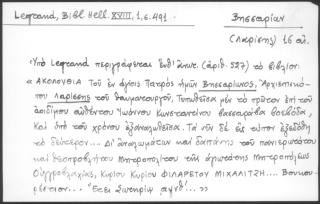 Legrand, Bibl. Hell. XVIII, 1, σ. 491.
Βησσαρίων
(Λαρίσης) 16 αἰ.
Ὑπὸ Legrand περιγράφεται (ἀριθ. 527) τὸ βιβλίον:
« ΑΚΟΛΟΥΘΙΑ Τοῦ ἐν ἁγίοις Πατρὸς ἡμῶν Βησσαρίωνος, Ἀρχιεπισκό-
που Λαρίσσης τοῦ θαυματουργοῦ, Τυπωθεῖσα μὲν τὸ πρῶτον ἐπὶ τοῦ
ἀοιδίμου αὐθέντου Ἰωάννου Κωνσταντίνου Βασσαράβα Βοεβόδα,
Καὶ ὑπὸ τοῦ χρόνου ἐξαναλωθεῖσα. Τὰ νῦν δὲ εἰς τύπον ἐξεδόθη
τὸ δεύτερον... Δι' ἀναλωμάτων καὶ δαπάνης τοῦ πανιερωτάτου
καὶ θεοπροβλήτου Μητροπολίτου τῆς ἁγιωτάτης Μητροπόλεως
Οὐγγροβλαχίας, Κυρίου Κυρίου ΦΙΛΑΡΕΤΟΥ ΜΙΧΑΛΙΤΖΗ.... Βουκου-
ρέστιον... Ἔτει Σωτηρίῳ ͵αψοθ'...»